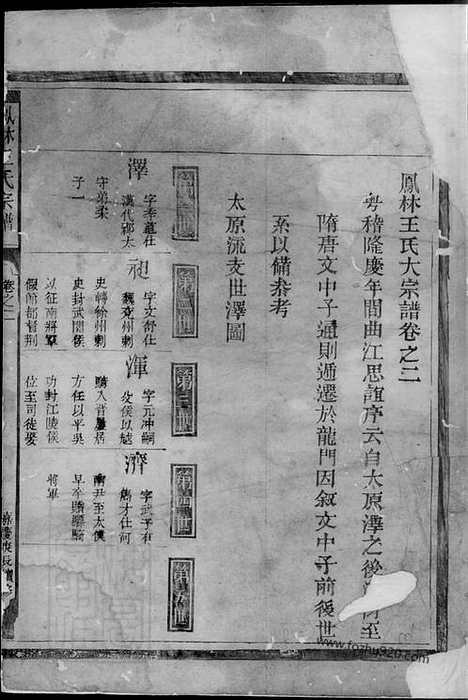 鳳林王氏大宗譜卷之二
稽隆慶年間曲江思誼序云自太原澤之後至
隋唐文中子通則遞遷於龍門因叙文中子前後世
系以備叅考
太原流支世澤圖
第一世
第二世
第三世
第四世
第五世
澤
字季道仕
漢代郡太
守弟柔
子一
昶
字文舒仕
魏兗州刺
史轉徐州刺
史封武閒侯
以征南將軍
假節都督荆
渾
字元冲嗣
父侯以尅
方任以平吳
功封江陵侯
位至司徒娶
濟
字武子有
儁才仕河
南尹至太僕
早卒贈驃騎
將軍
鳳林王氏宗譜
卷之二
www.fozhu920.com